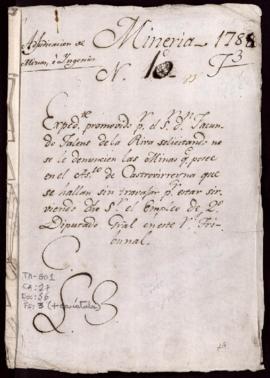 Adjudicacion de
Minas, è Yngenios
Mineria 1788
N. 10
Exped.te promovido p.r el S.r D.n Facun
do Falens de la Riva solicitando no
se le denuncien las Minas q.e posee
en el de Castrovirreyna que
se hallan sin travajar p.r estar sir-
viendo S.r el Empleo de
Diputado Gral en este Tri-
bunal.
C.
TM-GO1
CA: 27
DOC: 56